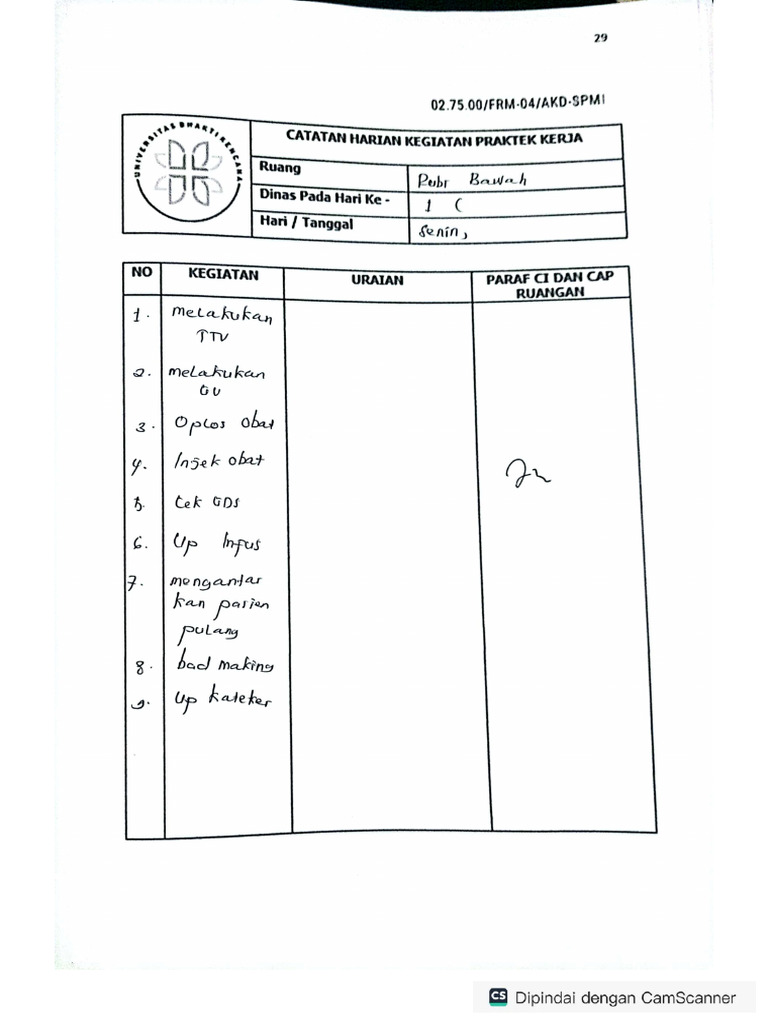 29
02.75.00/FRM-04/AKD-SPMI
UNIVERSITAS BHAKTI KENCANA
CATATAN HARIAN KEGIATAN PRAKTEK KERJA
Ruang
Bawah
Dinas Pada Hari Ke -
1 (
Hari / Tanggal
Senin,
NO
KEGIATAN
URAIAN
PARAF CI DAN CAP
RUANGAN
1. melakukan
TTV
2. melakukan
GV
3. Oplos Obat
4. Injek obat
5. Cek GDS
6. Up Infus
7. mengantar
kan pasien
pulang
8. bad making
9. Up kateter
CS Dipindai dengan CamScanner